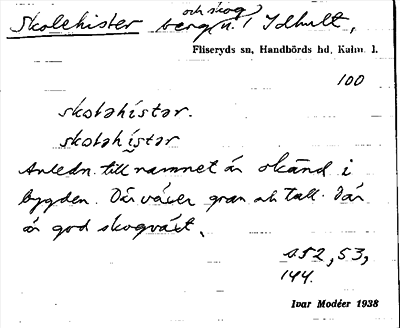 Skolehister berg och skog n. i Idhult,
Fliseryds sn, Handbörds hd, Kalm. l.
100
skoləhístər.
skoləhístər
Anledn. till namnet är okänd i
bygden. Där växer gran och tall. Där
är god skogväxt.
s. 52, 53,
144.
Ivar Modéer 1938